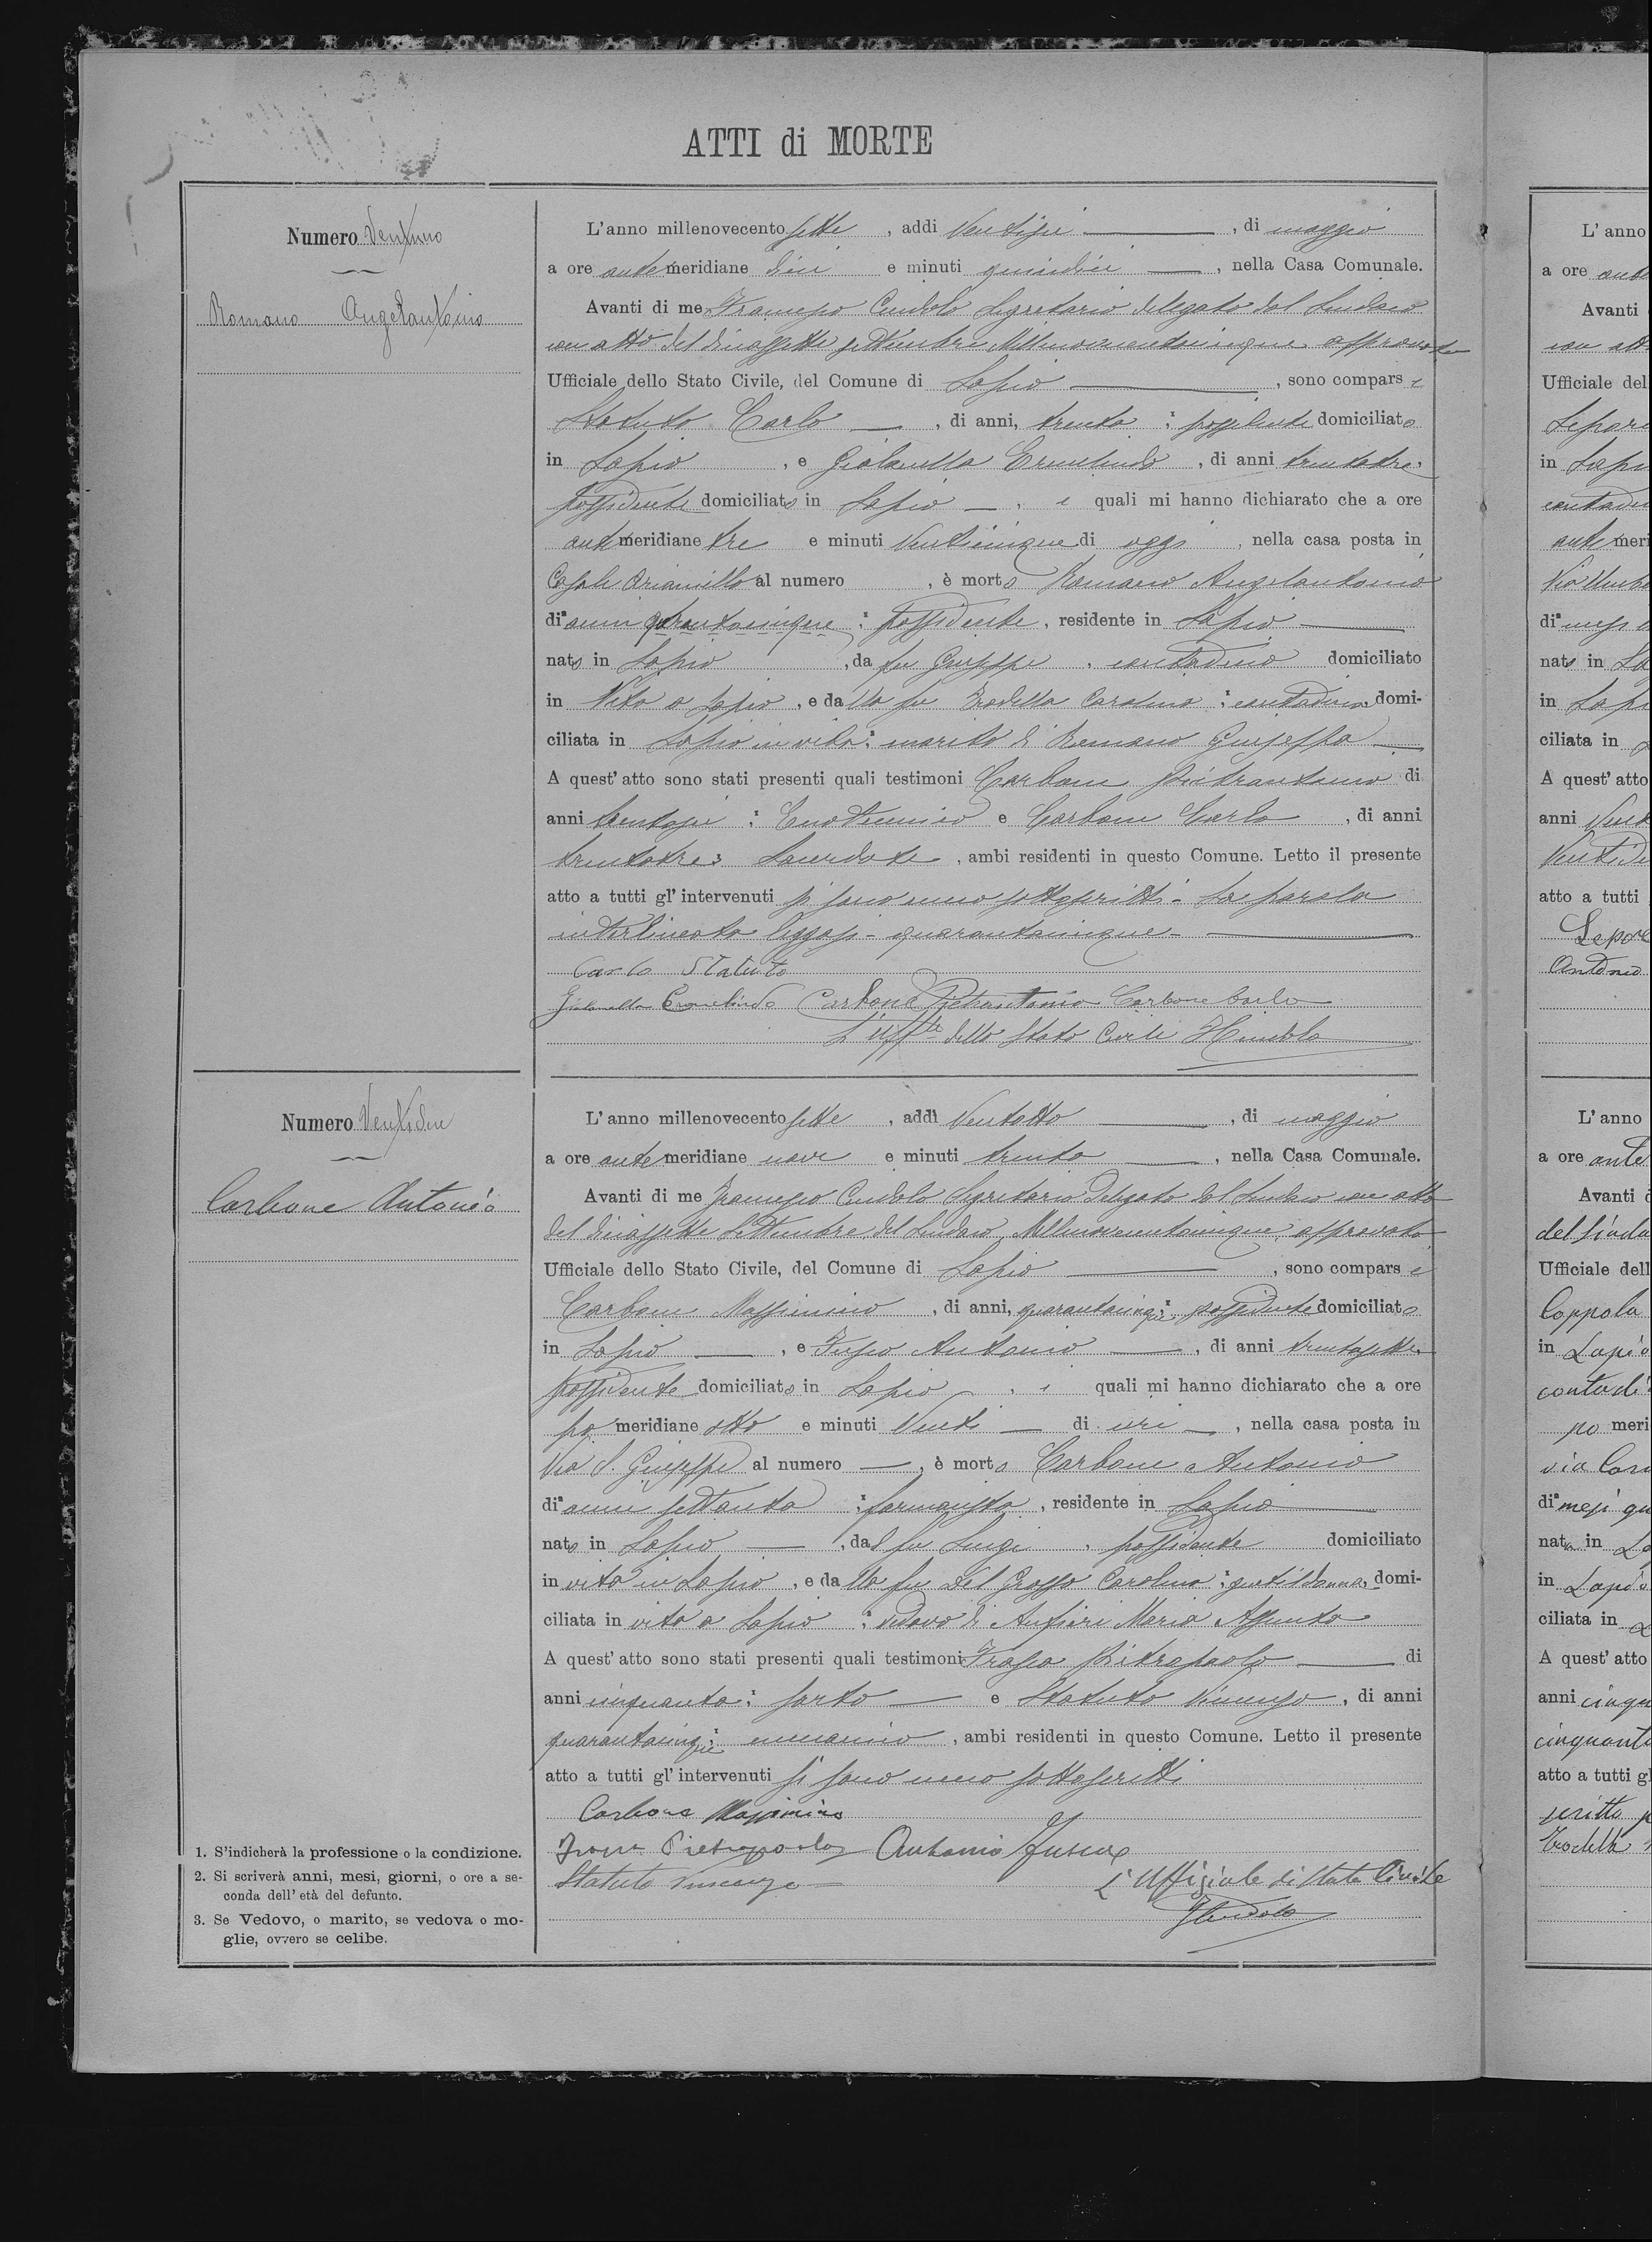 ATTI di MORTE
Numero Ventuno
Romano Angelantonio
L'anno millenovecento sette, addì Ventisei, di maggio
a ore antemeridiane dieci e minuti quindici, nella Casa Comunale.
Avanti di me Francesco Cendolo Segretario delegato dal Sindaco
con atto del diciassette settembre Millenovecentocinque approvato
Ufficiale dello Stato Civile, del Comune di Lapio, sono comparsi
Statuto Carlo, di anni, trenta; possidente domiciliato
in Lapio, e Giolanella Ermelindo, di anni trentatre,
possidente domiciliato in Lapio, i quali mi hanno dichiarato che a ore
antemeridiane tre e minuti Venticinque di oggi, nella casa posta in
Casale Arianiello al numero, è morto Romano Angelantonio
di anni quarantacinque; possidente, residente in Lapio
nato in Lapio, da fu Giuseppe, contadino domiciliato
in Vita a Lapio, e dalla fu Trodella Carolina; contadina domi-
ciliata in Lapio in vita; marito di Romano Giuseppa
A quest'atto sono stati presenti quali testimoni Carbone Pietrantonio di
anni trentasei; Enotecnico e Carbone Carlo, di anni
trentatre; Sacerdote, ambi residenti in questo Comune. Letto il presente
atto a tutti gl'intervenuti si sono meco sottoscritti - La parola
interlineata leggasi - quarantacinque -
Carlo Statuto
Giolanella Ermelindo Carbone Pietrantonio Carbone Carlo
L'Uff.le dello Stato Civile FCendolo
Numero Ventidue
Carbone Antonio
L'anno millenovecento sette, addì Ventotto, di maggio
a ore antemeridiane nove e minuti trenta, nella Casa Comunale.
Avanti di me Francesco Cendolo Segretario Delegato dal Sindaco con atto
del diciassette Settembre del Sindaco Millenovecentocinque, approvato
Ufficiale dello Stato Civile, del Comune di Lapio, sono comparsi
Carbone Massimino, di anni, quarantacinque; possidente domiciliato
in Lapio, e Fusco Antonio, di anni trentasette,
possidente domiciliato in Lapio, i quali mi hanno dichiarato che a ore
pomeridiane otto e minuti Venti di ieri, nella casa posta in
Via S. Giuseppe al numero, è morto Carbone Antonio
di anni settanta; farmacista, residente in Lapio
nato in Lapio, dal fu Luigi, possidente domiciliato
in vita in Lapio, e dalla fu Del Grosso Carolina; gentildonna, domi-
ciliata in vita a Lapio; vedovo di Anfieri Maria Assunta
A quest'atto sono stati presenti quali testimoni Pietropaolo di
anni cinquanta; sarto e Statuto Vincenzo, di anni
quarantacinque;, ambi residenti in questo Comune. Letto il presente
atto a tutti gl'intervenuti si sono meco sottoscritti
Carbone Massimino
Pietropaolo Antonio Fusco
Statuto Vincenzo L'Uffiziale di Stato Civile
FCendolo
1. S'indicherà la professione o la condizione.
2. Si scriverà anni, mesi, giorni, o ore a se-
conda dell'età del defunto.
3. Se Vedovo, o marito, se vedova o mo-
glie, ovvero se celibe.
L'anno
a ore ante
Avanti
con att
Ufficiale del
in Lapi
contadi
ante meri
di mesi
nato in La
in Lapi
ciliata in
A quest'atto
anni Vent
Ventidu
atto a tutti
Lepore
Antonio
L'anno
a ore ante
Avanti
del Sinda
Ufficiale dell
Coppola
in Lapio
contadi
po meri
via Car
di mesi qu
nata in La
in Lapio
ciliata in
A quest'atto
anni cinqu
cinquant
atto a tutti g
scritto
Trodella